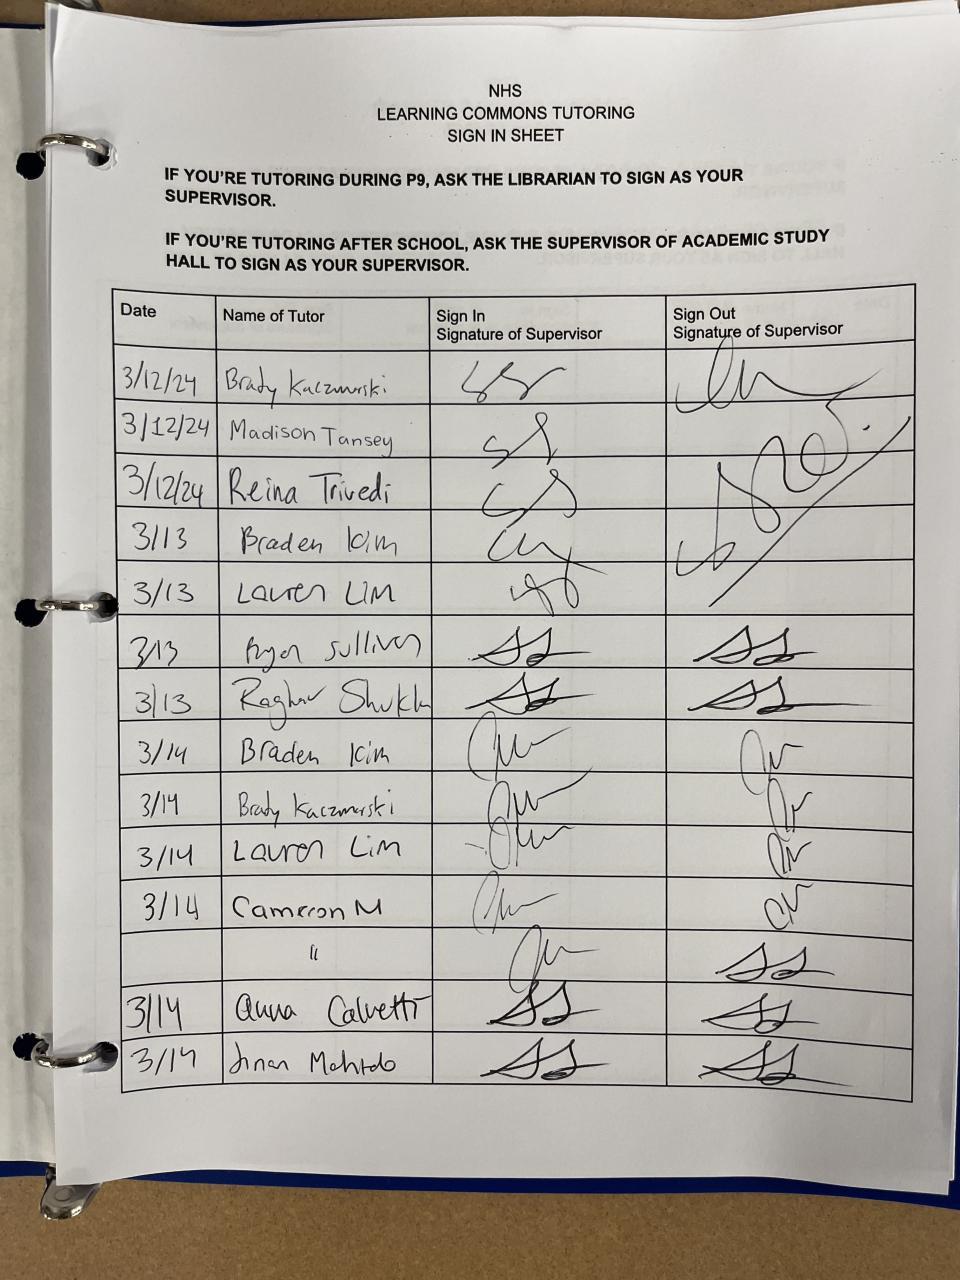 NHS
LEARNING COMMONS TUTORING
SIGN IN SHEET
IF YOU'RE TUTORING DURING P9, ASK THE LIBRARIAN TO SIGN AS YOUR
SUPERVISOR.
IF YOU'RE TUTORING AFTER SCHOOL, ASK THE SUPERVISOR OF ACADEMIC STUDY
HALL TO SIGN AS YOUR SUPERVISOR.
Date Name of Tutor Sign In Sign Out
Signature of Supervisor Signature of Supervisor
3/12/24 Brady Kaczmarski
3/12/24 Madison Tansey
3/12/24 Reina Trivedi
3/13 Braden Kim
3/13 Lauren Lim
3/13 Ryan Sullivan
3/13 Raghav Shukla
3/14 Braden Kim
3/14 Brady Kaczmarski
3/14 Lauren Lim
3/14 Cameron M
"
3/14 Anna Calvetti
3/14